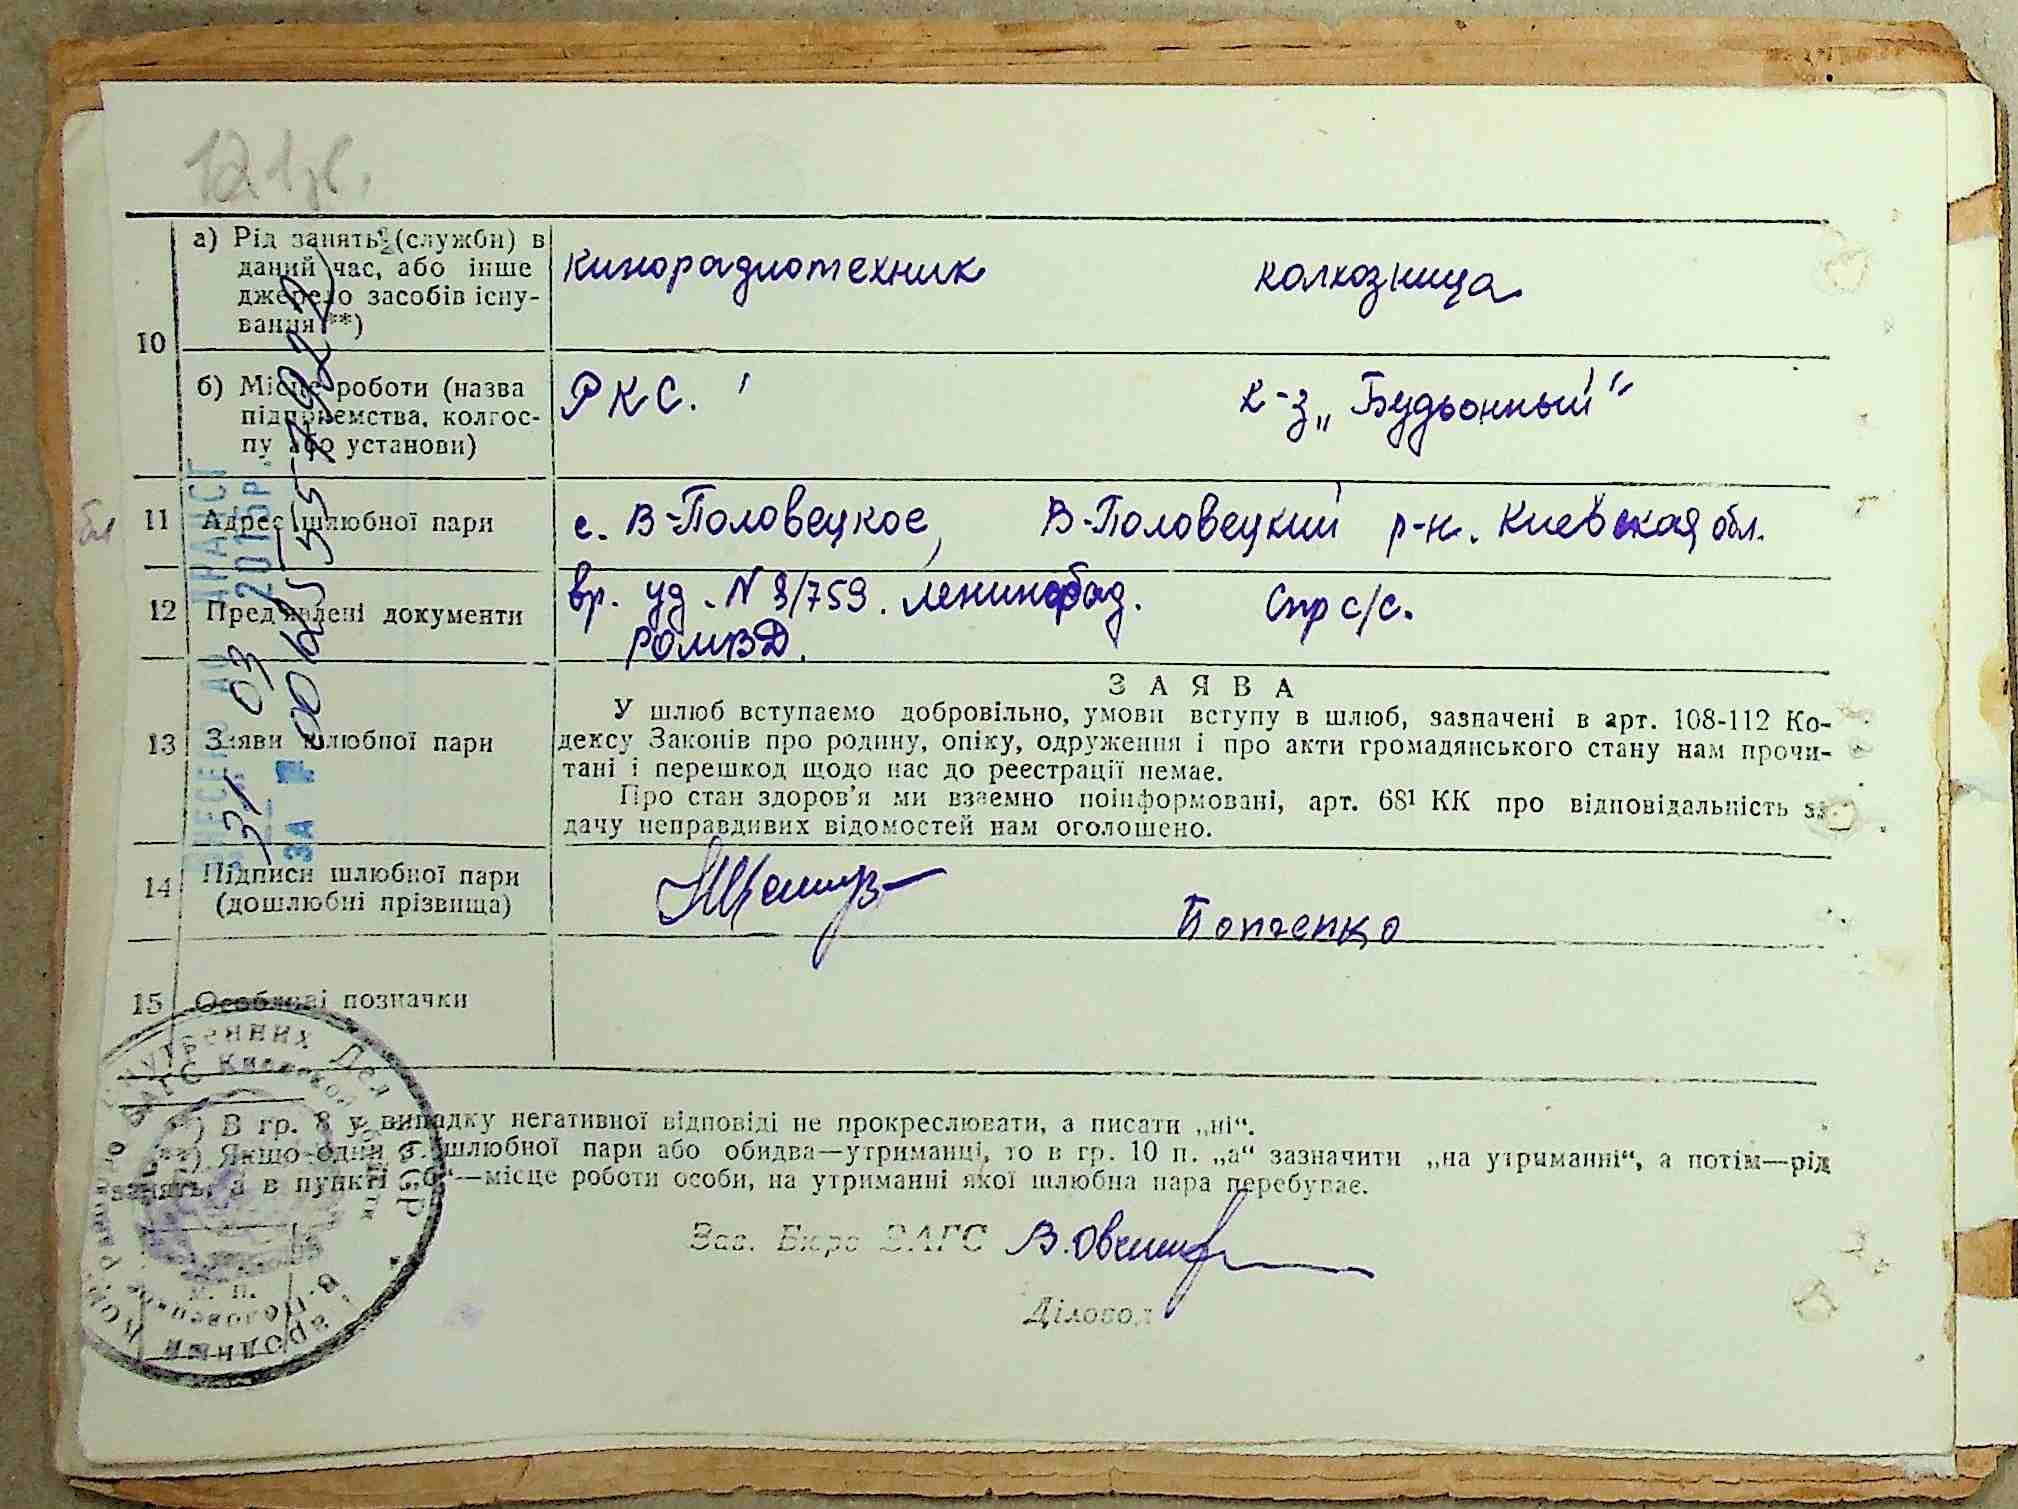 10
а) Рід занять (служби) в
даний час, або інше
джерело засобів існу-
вання **)
кинорадиотехник
колхозница
б) Місце роботи (назва
підприємства, колгос-
пу або установи)
РКС.
к-з „Будьонный"
11
Адрес шлюбної пари
с. В-Половецкое, В-Половецкий р-н. Киевская обл.
12
Пред'явлені документи
вр. уд. N 9/759. Ленинабад.
РОМВД.
Спр с/с.
13
Заяви шлюбної пари
ЗАЯВА
У шлюб вступаємо добровільно, умови вступу в шлюб, зазначені в арт. 108-112 Ко-
дексу Законів про родину, опіку, одруження і про акти громадянського стану нам прочи-
тані і перешкод щодо нас до реєстрації немає.
Про стан здоров'я ми взаємно поінформовані, арт. 68¹ КК про відповідальність за
дачу неправдивих відомостей нам оголошено.
14
Підписи шлюбної пари
(дошлюбні прізвища)
15
Особливі позначки
*) В гр. 8 у випадку негативної відповіді не прокреслювати, а писати „ні“.
**) Якщо один з шлюбної пари або обидва—утриманці, то в гр. 10 п. „а“ зазначити „на утриманні“, а потім—рід
занять, а в пункті „б“—місце роботи особи, на утриманні якої шлюбна пара перебуває.
Зав. Бюро ЗАГС
Діловод
м. п.
внутренних Дел
ЗАГС Киевской
Народный
31 03 2015р.
ЗА №